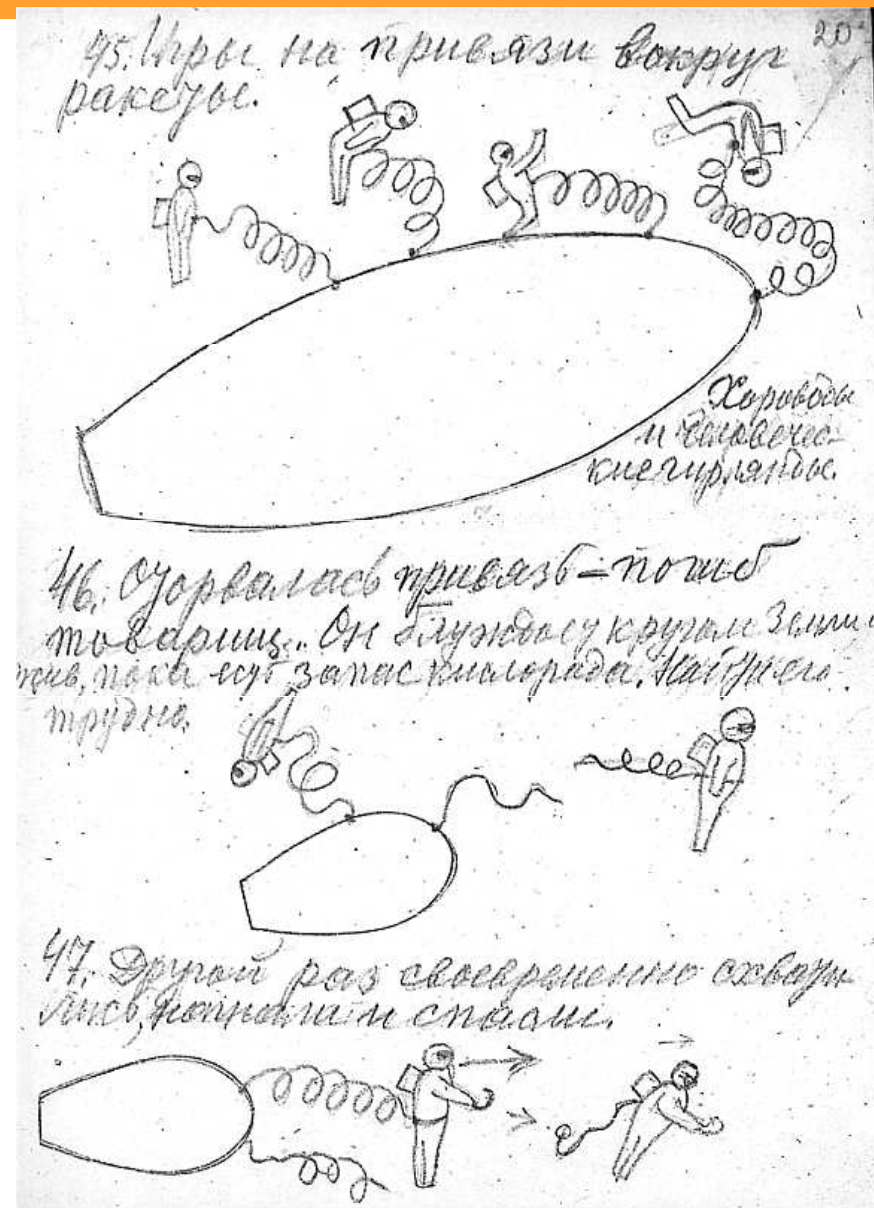 20
45. Игры на привязи вокруг
ракеты.
Хороводы
и человечес-
кие гирлянды.
46. Оторвалась привязь – погиб
товарищ. Он блуждает кругом Земли
жив, пока есть запас кислорода. Найти его
трудно.
47. Другой раз своевременно схвати-
лись, нагнали и спасли.